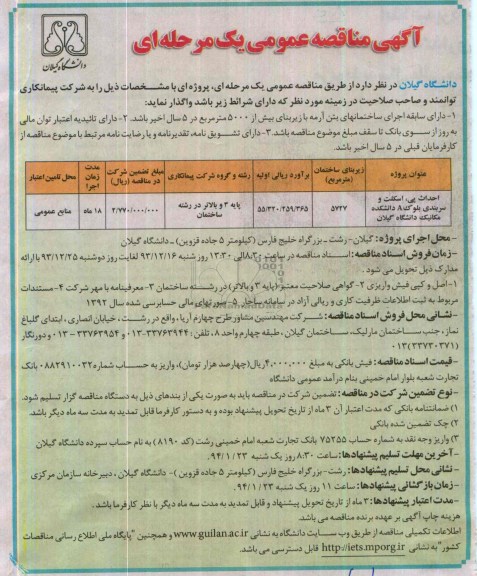 دانشگاه گیلان
آگهی مناقصه عمومی یک مرحله ای
دانشگاه گیلان در نظر دارد از طریق مناقصه عمومی یک مرحله ای، پروژه ای با مشخصات ذیل را به شرکت پیمانکاری
توانمند و صاحب صلاحیت در زمینه مورد نظر که دارای شرائط زیر باشد واگذار نماید:
۱- دارای سابقه اجرای ساختمانهای بتن آرمه با زیربنای بیش از ۵۰۰۰ مترمربع در ۵ سال اخیر باشد. ۲- دارای تائیدیه اعتبار توان مالی
به روز از سوی بانک تا سقف مبلغ موضوع مناقصه باشد. ۳- دارای تشویق نامه، تقدیرنامه و یا رضایت نامه مرتبط با موضوع مناقصه از
کارفرمایان قبلی در ۵ سال اخیر باشد.
عنوان پروژه | زیربنای ساختمان (مترمربع) | برآورد ریالی اولیه | رشته و گروه شرکت پیمانکاری | مبلغ تضمین شرکت در مناقصه (ریال) | مدت زمان اجرا | محل تامین اعتبار
احداث پی، اسکلت و سربندی بلوک A دانشکده مکانیک دانشگاه گیلان | ۵۷۲۷ | ۵۵/۳۲۰/۲۵۹/۳۶۵ | پایه ۳ و بالاتر در رشته ساختمان | ۲/۷۷۰/۰۰۰/۰۰۰ | ۱۸ ماه | منابع عمومی
-محل اجرای پروژه: گیلان- رشت – بزرگراه خلیج فارس (کیلومتر ۵ جاده قزوین) – دانشگاه گیلان
-زمان فروش اسناد مناقصه: اسناد مناقصه در ساعت ۸:۳۰ الی ۱۳:۳۰ روز شنبه ۹۳/۱۲/۱۶ لغایت روز دوشنبه ۹۳/۱۲/۲۵ با ارائه
مدارک ذیل تحویل می شود.
۱- اصل و کپی فیش واریزی ۲- گواهی صلاحیت معتبر (پایه ۳ و بالاتر) در رشته ساختمان ۳- معرفینامه با مهر شرکت ۴- مستندات
مربوط به ثبت اطلاعات ظرفیت کاری و ریالی آزاد در سامانه ساجار ۵- صورتهای مالی حسابرسی شده سال ۱۳۹۲
-نشانی محل فروش اسناد مناقصه: شرکت مهندسین مشاور طرح چهارم آریا، واقع در رشت، خیابان انصاری، ابتدای گلباغ
نماز، جنب ساختمان مارلیک، ساختمان گیلان، طبقه چهارم واحد ۸، تلفن: ۳۳۷۶۳۹۴۴-۰۱۳ و ۳۳۷۶۳۹۵۴-۰۱۳ و دورنگار
(۰۱۳۳۳۷۳۰۳۷۱)
-قیمت اسناد مناقصه: فیش بانکی به مبلغ ۴,۰۰۰,۰۰۰ ریال (چهارصد هزار تومان)، واریز به حساب شماره ۰۸۸۲۹۱۰۰۳۲ بانک
تجارت شعبه بلوار امام خمینی بنام درآمد عمومی دانشگاه
-نوع تضمین شرکت در مناقصه: تضمین شرکت در مناقصه باید به صورت یکی از بندهای ذیل به دستگاه مناقصه گزار تسلیم شود.
۱) ضمانتنامه بانکی که مدت اعتبار آن ۳ ماه از تاریخ تحویل پیشنهاد بوده و به دستور کارفرما قابل تمدید به مدت سه ماه دیگر باشد.
۲) چک تضمین شده بانکی
۳) واریز وجه نقد به شماره حساب ۷۵۲۵۵ بانک تجارت شعبه امام خمینی رشت (کد ۸۱۹۰) به نام حساب سپرده دانشگاه گیلان
-آخرین مهلت تسلیم پیشنهادها: ساعت ۸:۳۰ روز یک شنبه ۹۴/۰۱/۲۳
-نشانی محل تسلیم پیشنهادها: رشت- بزرگراه خلیج فارس (کیلومتر ۵ جاده قزوین) – دانشگاه گیلان، دبیرخانه سازمان مرکزی
-زمان بازگشائی پیشنهادها: ساعت ۱۱ روز یک شنبه ۹۴/۰۱/۲۳
-مدت اعتبار پیشنهادها: ۳ ماه از تاریخ تحویل پیشنهاد و قابل تمدید به مدت سه ماه دیگر با نظر کارفرما باشد.
هزینه چاپ آگهی بر عهده برنده مناقصه می باشد.
اطلاعات تکمیلی مناقصه از طریق وب سایت دانشگاه به نشانی www.guilan.ac.ir و همچنین "پایگاه ملی اطلاع رسانی مناقصات
کشور" به نشانی http://iets.mporg.ir قابل دسترسی می باشد.